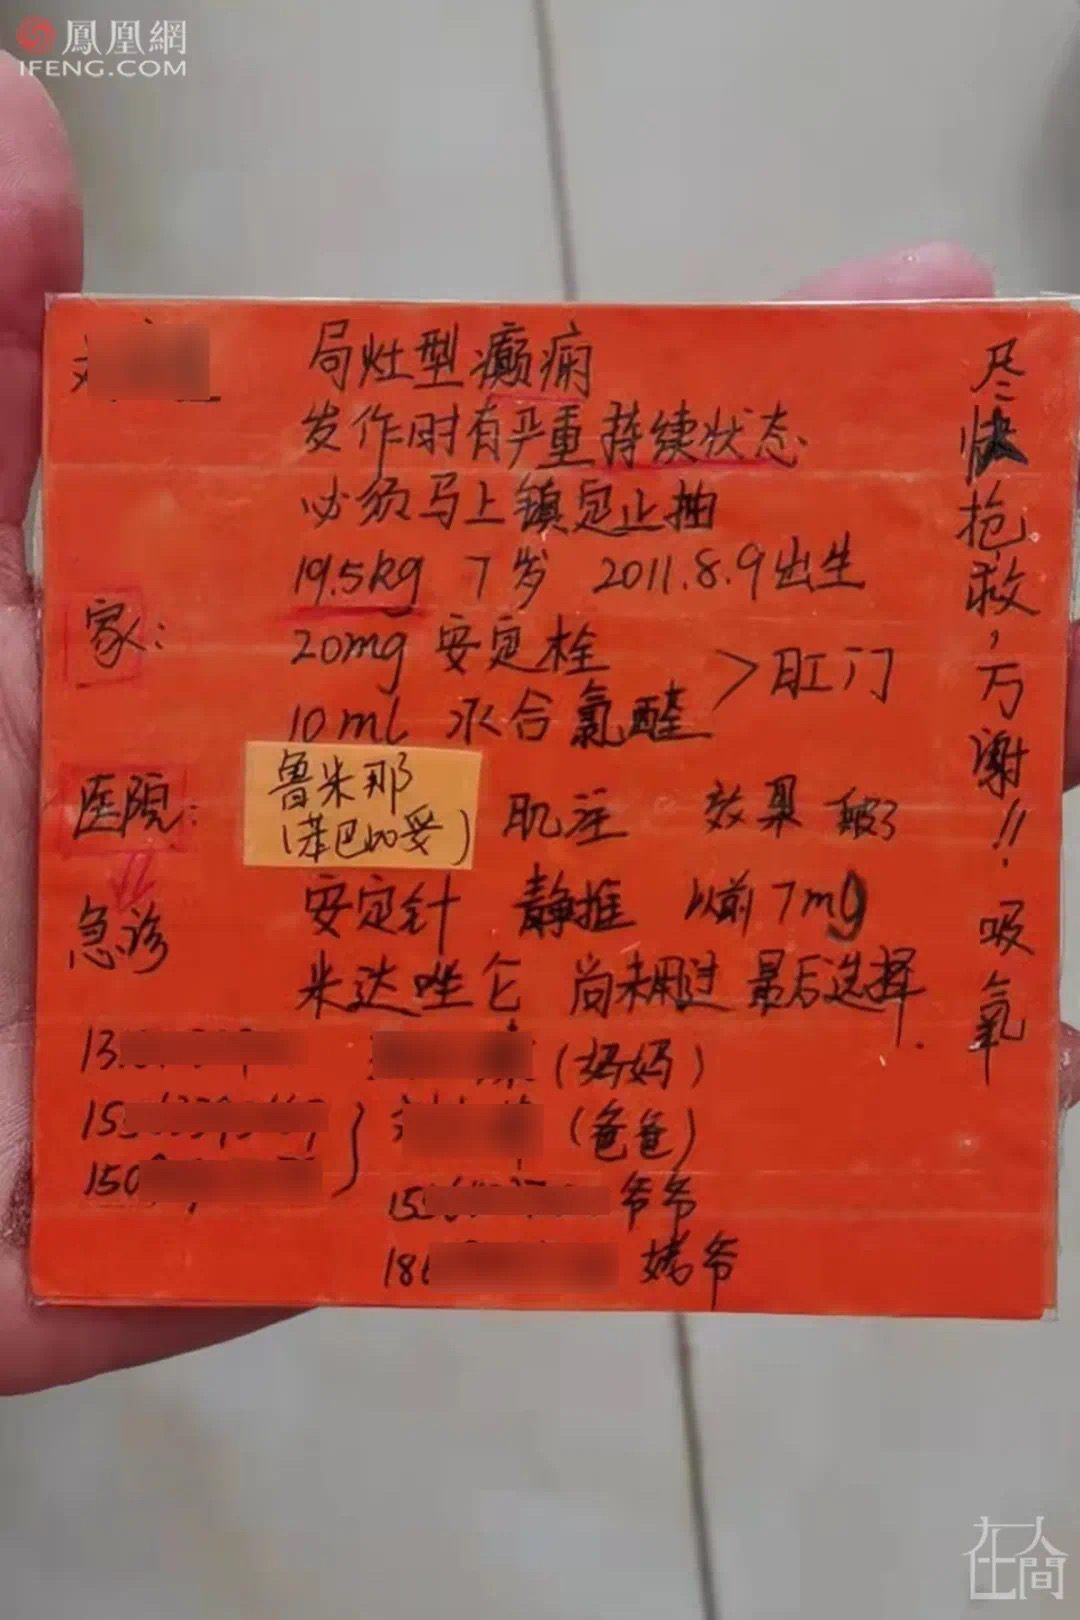 鳳凰網
IFENG.COM
局灶型癫痫
发作时有严重持续状态
必须马上镇定止抽
19.5kg 7岁 2011.8.9出生
家: 20mg 安定栓
10ml 水合氯醛 > 肛门
医院: 鲁米那
(苯巴比妥) 肌注 效果
急诊 安定针 静推 以前7mg
米达唑仑 尚未用过 最后选择.
13 (妈妈)
15 (爸爸)
150
15 爷爷
18 姥爷
尽快抢救,万谢!!吸氧
在人間